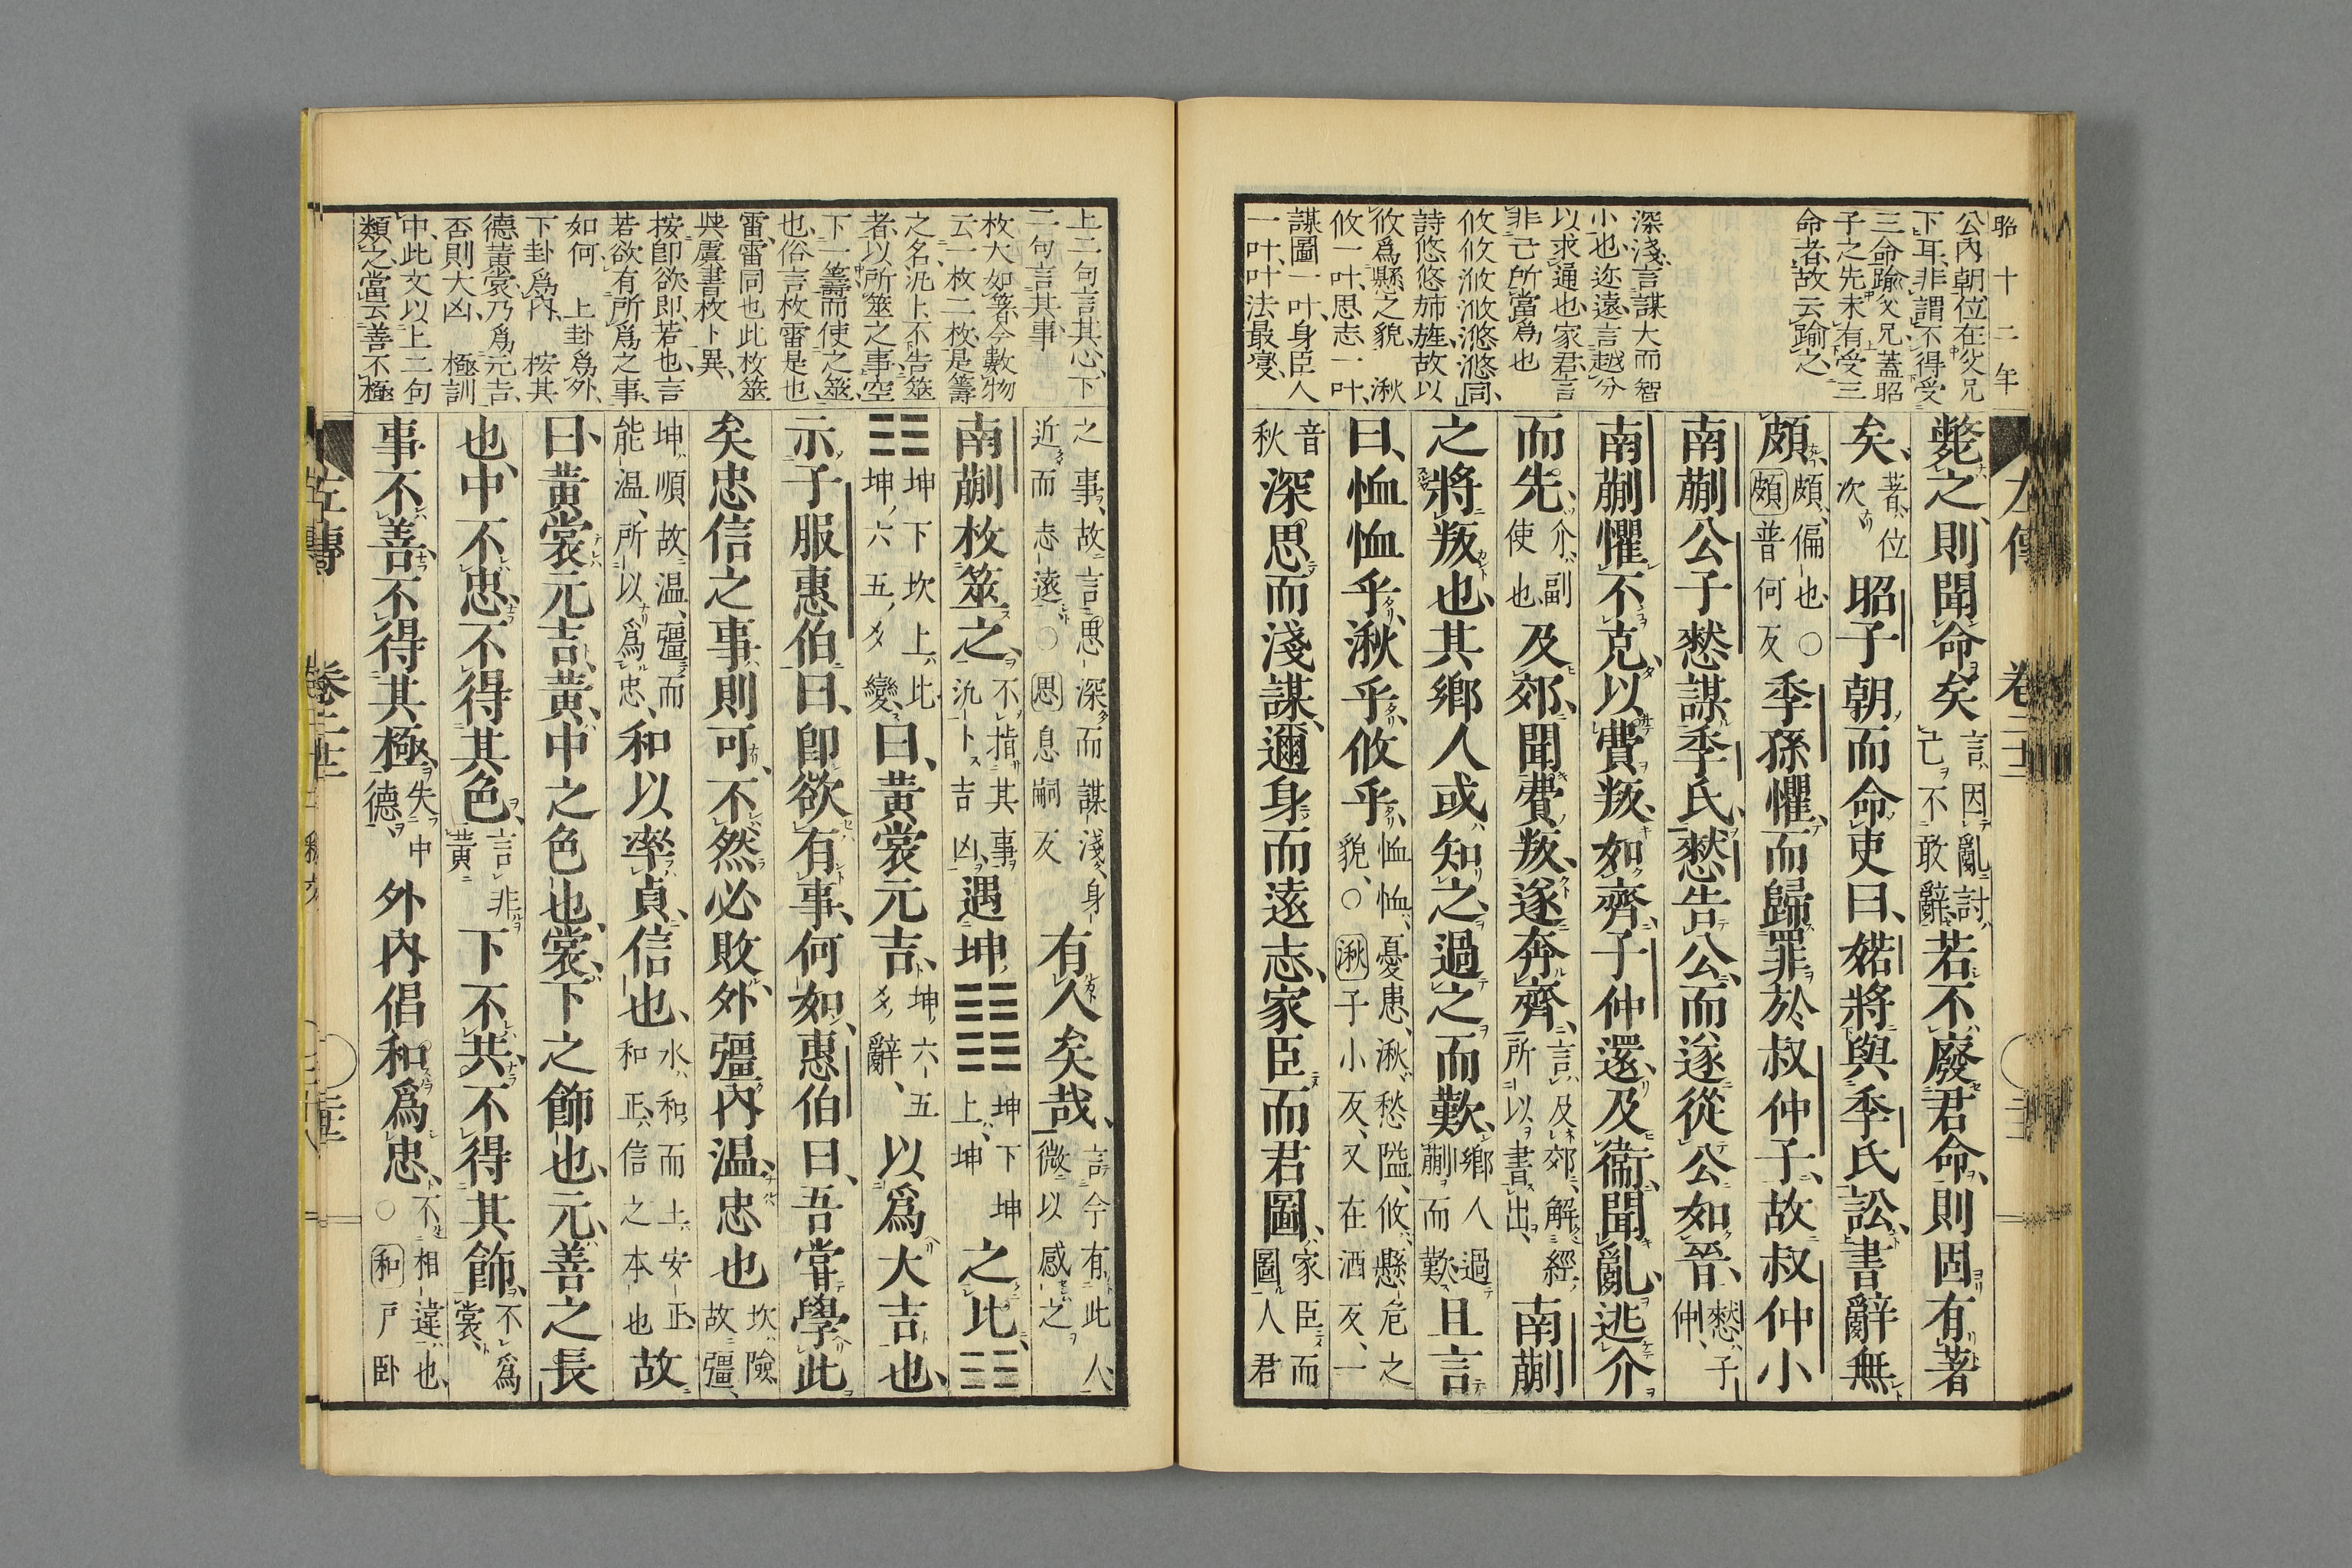 昭十二年
公內朝位在父兄
下耳非謂不得受
三命踰父兄蓋昭
子之先未有受三
命者故云踰之
深淺言謀大而智
小也迩遠言越分
以求通也家君言
非己所當爲也
攸攸浟浟悠悠同
詩悠悠斾旌故以
攸爲懸之貌 湫
攸一叶思志一叶
謀圖一叶身臣人
一叶叶法最變
左傳 卷二十二
斃之則聞命矣言因亂討己不敢辭若不廢君命則固有著
矣著位次昭子朝而命吏曰婼將與季氏訟書辭無
頗頗偏也○頗普何反季孫懼而歸罪於叔仲子故叔仲小
南蒯公子憖謀季氏憖告公而遂從公如晉憖子仲
南蒯懼不克以費叛如齊子仲還及衞聞亂逃介
而先介副使也及郊聞費叛遂奔齊言及郊解經所以書出南蒯
之將叛也其鄉人或知之過之而歎鄉人過蒯而歎且言
曰恤恤乎湫乎攸乎恤恤憂患湫愁隘攸懸危之貌○湫子小反又在酒反一
音秋深思而淺謀邇身而遠志家臣而君圖家臣而圖人君
上二句言其心下
二句言其事
枚大如箸今數物
云一枚二枚是籌
之名汎卜不告筮
者以所筮之事空
下一籌而使之筮
也俗言枚雷是也
雷雷同也此枚筮
與虞書枚卜異
按卽欲卽若也言
若欲有所爲之事
如何 上卦爲外
下卦爲內 按其
德黃裳乃爲元吉
否則大凶 極訓
中此文以上二句
類之當云善不極
之事故言思深而謀淺身近而志遠○思息嗣反有人矣哉言今有此人微以感之
南蒯枚筮之不指其事汎卜吉凶遇坤䷁坤下坤上坤之比䷇
坤下坎上比坤六五爻變曰黃裳元吉坤六五爻辭以爲大吉也
示子服惠伯曰卽欲有事何如惠伯曰吾嘗學此
矣忠信之事則可不然必敗外彊內温忠也坎險故彊
坤順故温彊而能温所以爲忠和以率貞信也水和而土安正和正信之本也故
曰黃裳元吉黃中之色也裳下之飾也元善之長
也中不忠不得其色言非黃下不共不得其飾不爲裳
事不善不得其極失中德外內倡和爲忠不相違也○和戸卧
左傳 卷二十二